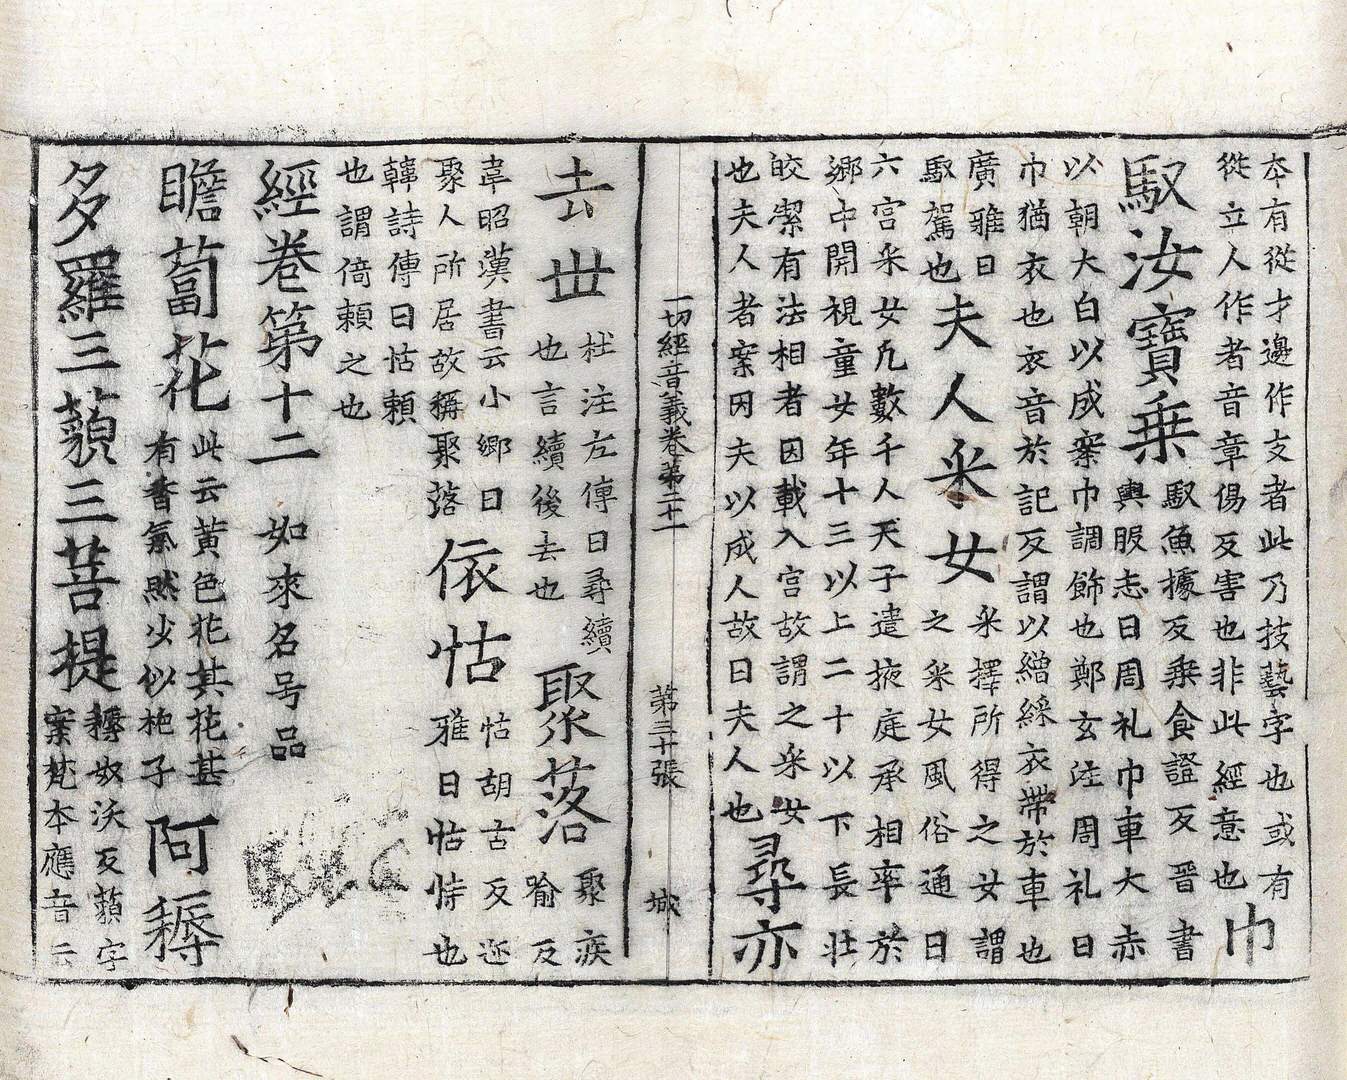 本有從才邊作支者此乃技藝字也或有
從立人作者音章傷反害也非此經意也
巾
馭汝寶乗
馭魚據反乗食證反晋書
輿服志曰周礼巾車大赤
以朝大白以成案巾調飾也鄭玄注周礼曰
巾猶衣也衣音於記反謂以繒綵衣帶於車也
廣雅曰
馭駕也
夫人采女
采擇所得之女謂
之采女風俗通曰
六宮采女凢數千人天子遣掖庭承相率於
鄉中開視童女年十三以上二十以下長壯
皎潔有法相者因載入宮故謂之采女
也夫人者案因夫以成人故曰夫人也
尋亦
一切經音義卷第二十一
第三十張
城
去丗
杜注左傳曰尋續
也言續後去也
聚落
聚疾
喻反
韋昭漢書云小鄉曰
聚人所居故稱聚落
依怙
怙胡古反迩
雅曰怙恃也
韓詩傳曰怙賴
也謂倚賴之也
經卷第十二
如來名号品
瞻蔔花
此云黄色花其花甚
有香氣然少似栀子
阿耨
多羅三藐三菩提
耨奴沃反藐字
案梵本應音云